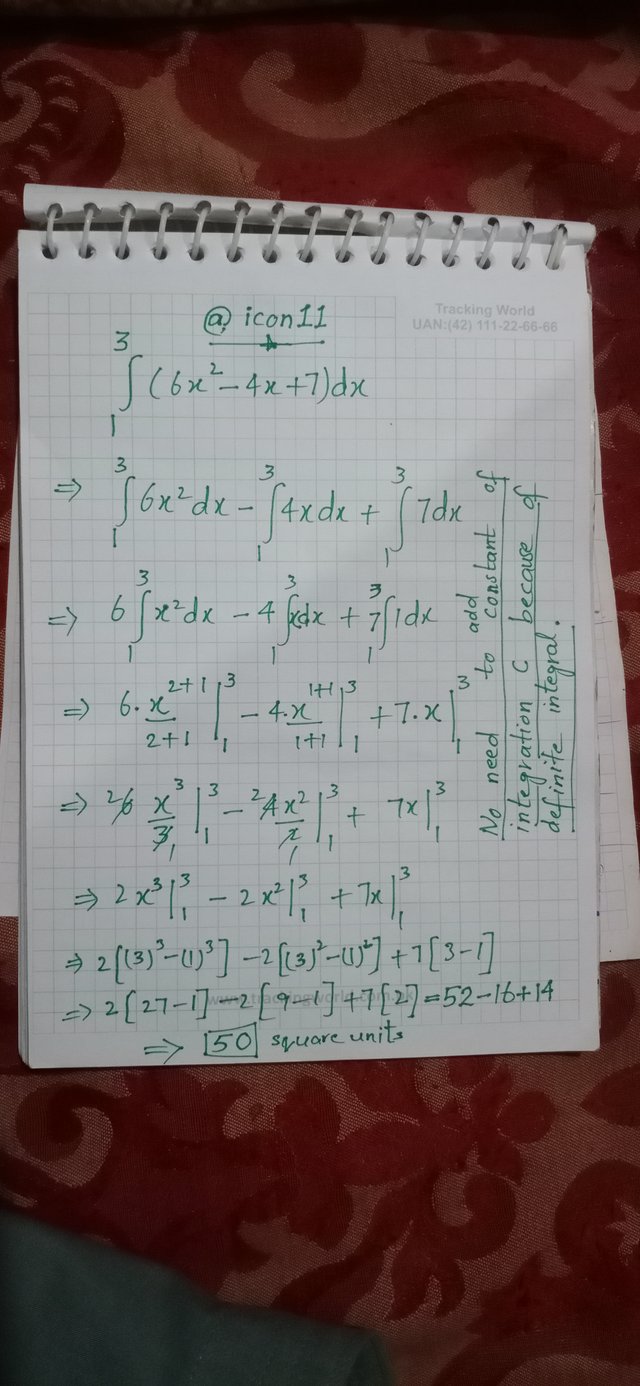 @ icon11
Tracking World
UAN:(42) 111-22-66-66
3
∫ (6x² - 4x + 7)dx
1
⇒ ∫₁³ 6x² dx - ∫₁³ 4x dx + ∫₁³ 7 dx
⇒ 6 ∫₁³ x² dx - 4 ∫₁³ x dx + 7 ∫₁³ 1 dx
⇒ 6 · x²⁺¹/2+1 |₁³ - 4 · x¹⁺¹/1+1 |₁³ + 7 · x |₁³
⇒ ²6 x³/3₁ |₁³ - ²4x²/2₁ |₁³ + 7x |₁³
⇒ 2x³ |₁³ - 2x² |₁³ + 7x |₁³
⇒ 2[(3)³ - (1)³] - 2[(3)² - (1)²] + 7[3 - 1]
⇒ 2[27 - 1] - 2[9 - 1] + 7[2] = 52 - 16 + 14
⇒ 50 square units
No need to add constant of
integration C because of
definite integral.